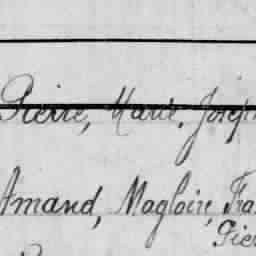 Pierre, Marie, Joseph
Amand, Magloire, Fra
Pier